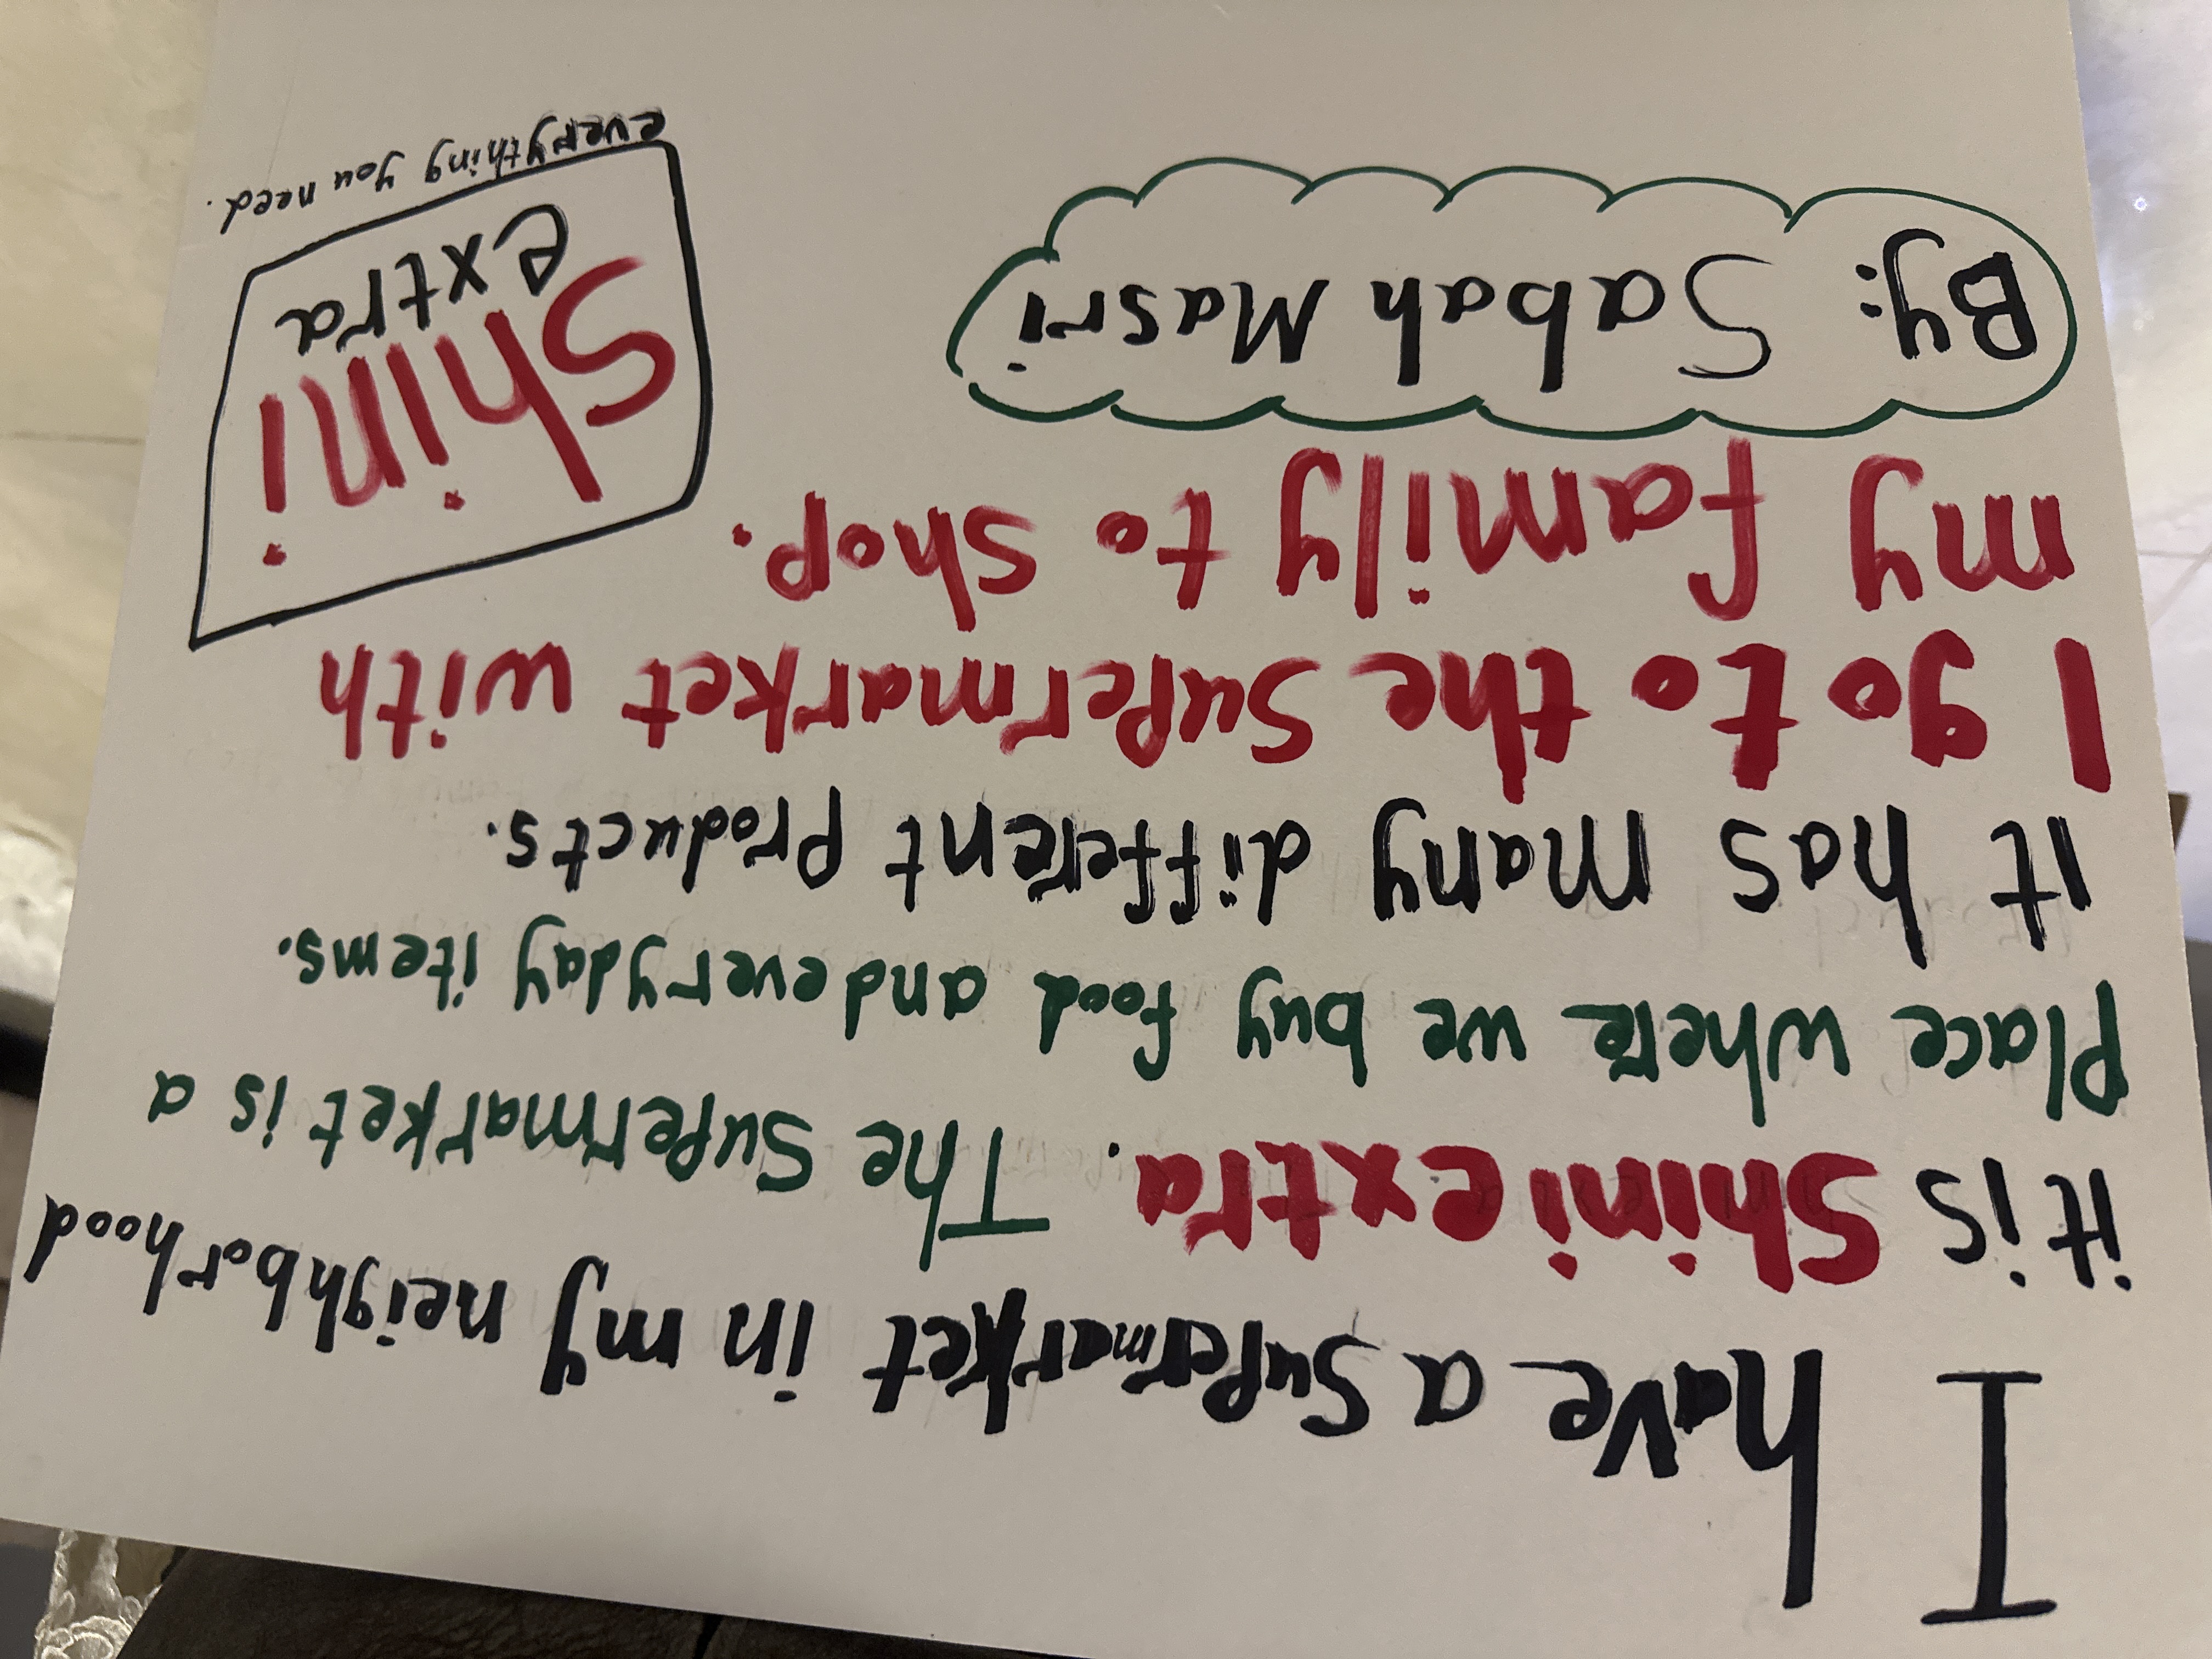 I have a Supermarket in my neighborhood
it is Shini extra. The Supermarket is a
Place where we buy food and everyday items.
It has many different Products.
I go to the Supermarket with
my family to shop.
By: Sabah Masri
Shini
extra
everything you need.